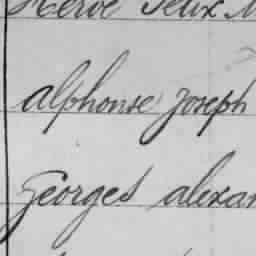 Hervé Felix
alphonse Joseph
Georges alexan